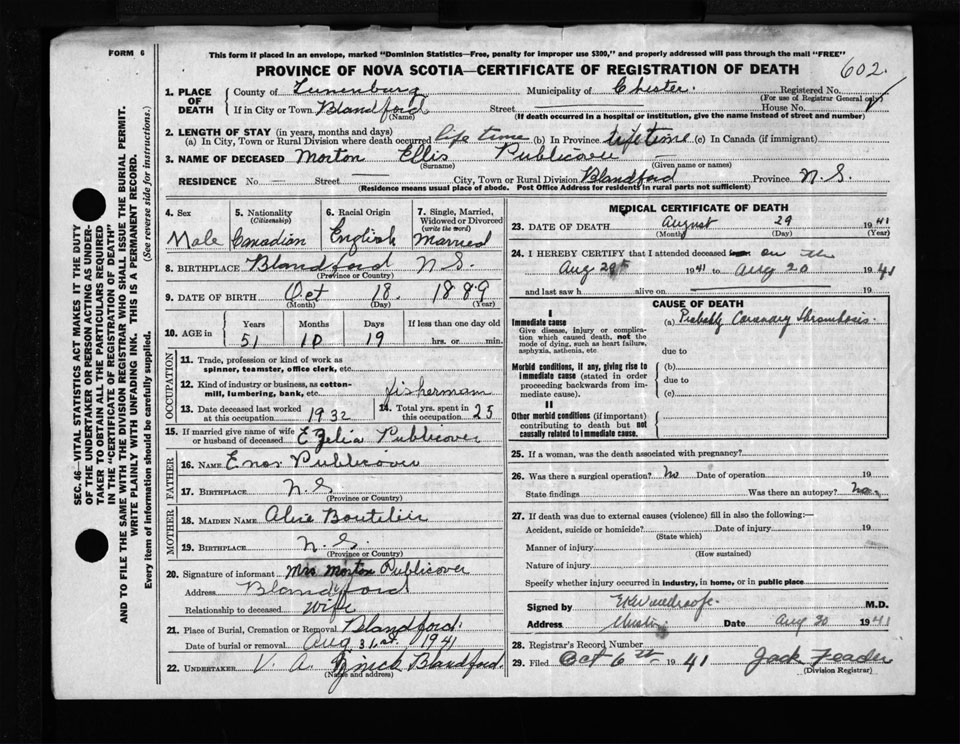 FORM 6
This form if placed in an envelope, marked "Dominion Statistics—Free, penalty for improper use $300," and properly addressed will pass through the mail "FREE"
PROVINCE OF NOVA SCOTIA—CERTIFICATE OF REGISTRATION OF DEATH
602
1. PLACE OF DEATH
County of Lunenburg Municipality of Chester. Registered No.
(For use of Registrar General only)
If in City or Town Blandford Street House No.
(Name) (If death occurred in a hospital or institution, give the name instead of street and number)
2. LENGTH OF STAY (in years, months and days)
(a) In City, Town or Rural Division where death occurred life time (b) In Province life time (c) In Canada (if immigrant)
3. NAME OF DECEASED Morton Ellis Publicover
(Surname) (Given name or names)
RESIDENCE No. Street City, Town or Rural Division Blandford Province N.S.
(Residence means usual place of abode. Post Office Address for residents in rural parts not sufficient)
4. Sex
Male
5. Nationality (Citizenship)
Canadian
6. Racial Origin
English
7. Single, Married, Widowed or Divorced (write the word)
Married
8. BIRTHPLACE Blandford N.S.
(Province or Country)
9. DATE OF BIRTH Oct 18. 1889
(Month) (Day) (Year)
10. AGE in
Years Months Days If less than one day old
51 10 19 hrs. or min.
OCCUPATION
11. Trade, profession or kind of work as spinner, teamster, office clerk, etc.
12. Kind of industry or business, as cotton-mill, lumbering, bank, etc. fishermann
13. Date deceased last worked at this occupation 1932
14. Total yrs. spent in this occupation 25
15. If married give name of wife or husband of deceased Ezelia Publicover
FATHER
16. NAME Enos Publicover
17. BIRTHPLACE N.S
(Province or Country)
MOTHER
18. MAIDEN NAME Alice Boutilier
19. BIRTHPLACE N.S.
(Province or Country)
20. Signature of informant Mrs Morton Publicover
Address Blandford
Relationship to deceased Wife
21. Place of Burial, Cremation or Removal Blandford.
Date of burial or removal Aug 31st. 1941
22. UNDERTAKER V. A. Zinck Blandford.
(Name and address)
MEDICAL CERTIFICATE OF DEATH
23. DATE OF DEATH August 29 1941
(Month) (Day) (Year)
24. I HEREBY CERTIFY that I attended deceased on the
Aug 29th 1941 to Aug 20 1941
and last saw h alive on 19
CAUSE OF DEATH
I
Immediate cause
Give disease, injury or complication which caused death, not the mode of dying, such as heart failure, asphyxia, asthenia, etc.
(a) Probably Coronary thrombosis.
due to
Morbid conditions, if any, giving rise to immediate cause (stated in order proceeding backwards from immediate cause).
(b)
due to
(c)
II
Other morbid conditions (if important) contributing to death but not causally related to immediate cause.
25. If a woman, was the death associated with pregnancy?
26. Was there a surgical operation? No Date of operation 19
State findings Was there an autopsy? No
27. If death was due to external causes (violence) fill in also the following:—
Accident, suicide or homicide? Date of injury 19
(State which)
Manner of injury
(How sustained)
Nature of injury
Specify whether injury occurred in industry, in home, or in public place
Signed by M.D.
Address Date Aug 30 1941
28. Registrar's Record Number
29. Filed Oct 6th 1941 Jack Feader
(Division Registrar)
SEC. 46—VITAL STATISTICS ACT MAKES IT THE DUTY
OF THE UNDERTAKER OR PERSON ACTING AS UNDERTAKER TO OBTAIN ALL THE PARTICULARS REQUIRED
IN THE "CERTIFICATE OF REGISTRATION OF DEATH"
AND TO FILE THE SAME WITH THE DIVISION REGISTRAR WHO SHALL ISSUE THE BURIAL PERMIT.
WRITE PLAINLY WITH UNFADING INK. THIS IS A PERMANENT RECORD.
Every item of information should be carefully supplied. (See reverse side for instructions.)